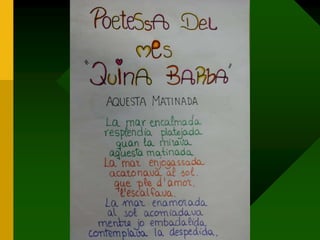 POETESSA DEL
MES
"QUINA BARBA"
AQUESTA MATINADA
La mar encalmada
resplendia platejada
quan la mirava
aquesta matinada.
La mar enjogassada
acaronava al sol.
que ple d'amor,
l'escalfava.
La mar enamorada
al sol acomiadava
mentre jo embadalida
contemplava la despedida.